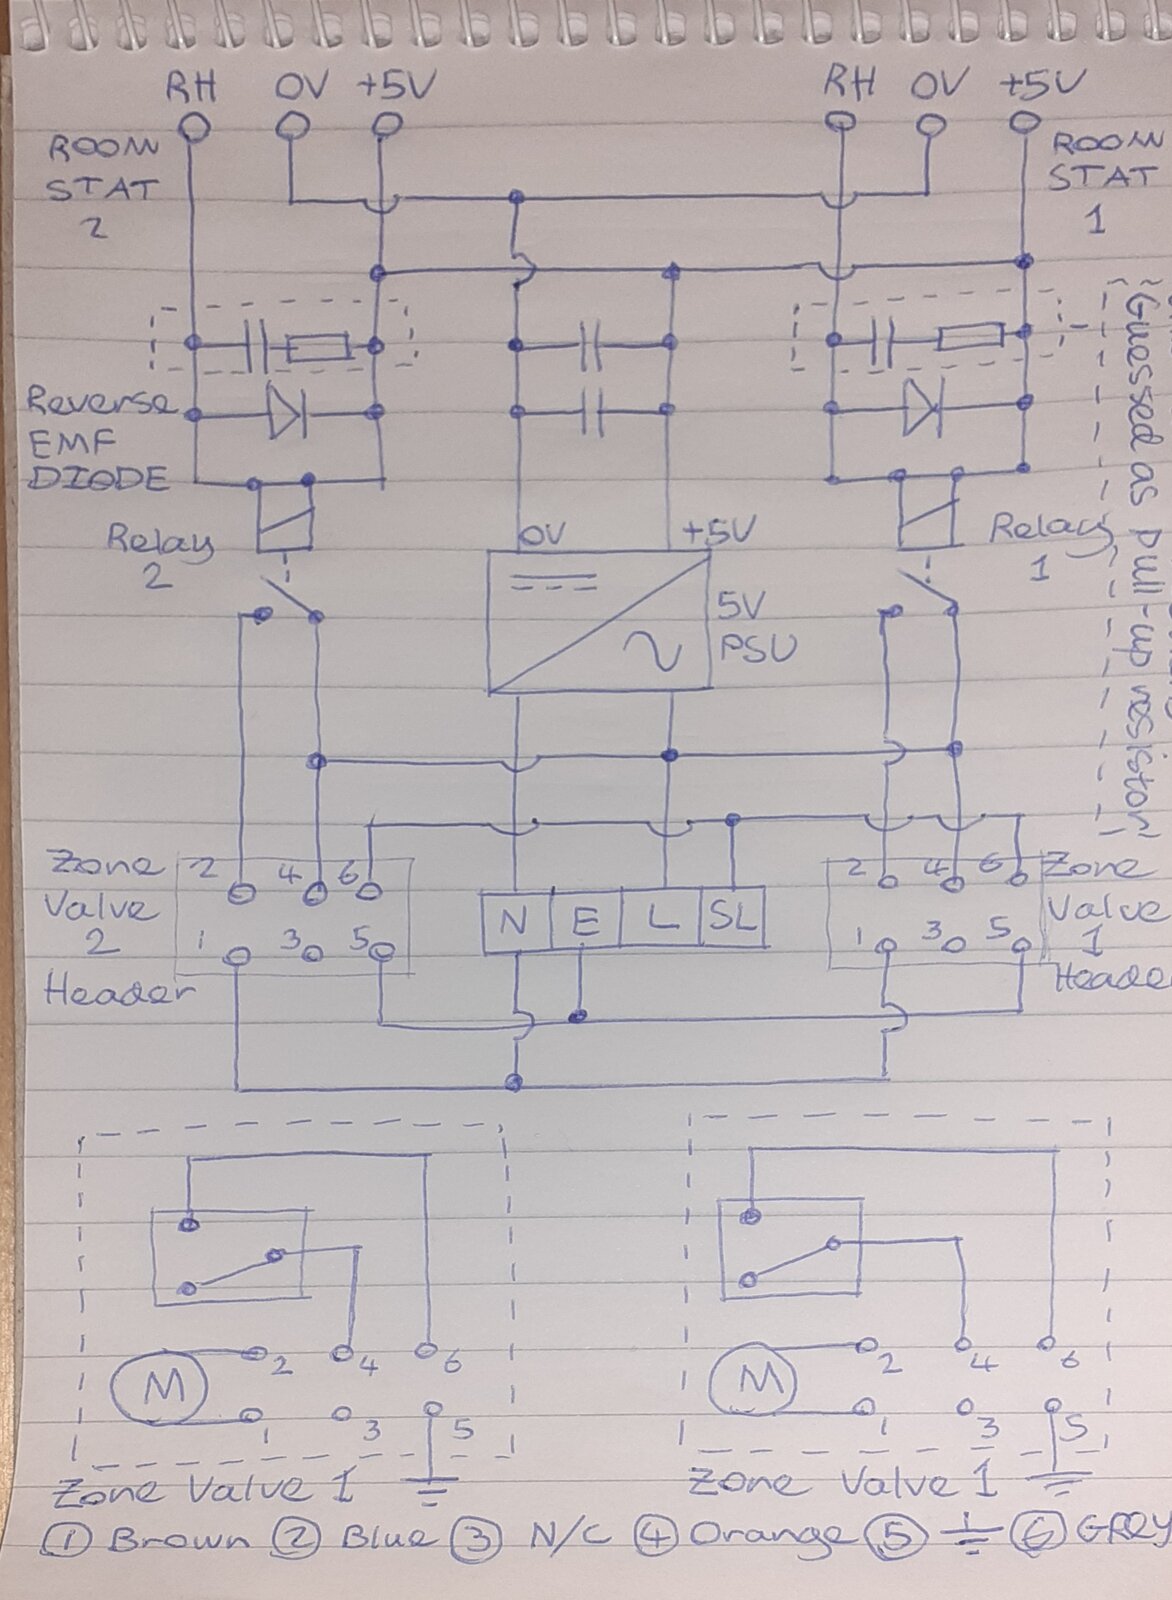 RH OV +5V
RH OV +5V
ROOM
STAT
2
ROOM
STAT
1
"Guessed as pull-up resistor"
Reverse
EMF
DIODE
Relay
2
OV +5V
5V
PSU
Relay
1
Zone
Valve
2
Header
2 4 6
1 3 5
N E L SL
2 4 6
1 3 5
Zone
Valve
1
Header
M
2 4 6
1 3 5
Zone Valve 1
M
2 4 6
1 3 5
Zone Valve 1
① Brown ② Blue ③ N/C ④ Orange ⑤ ⏚ ⑥ GREY